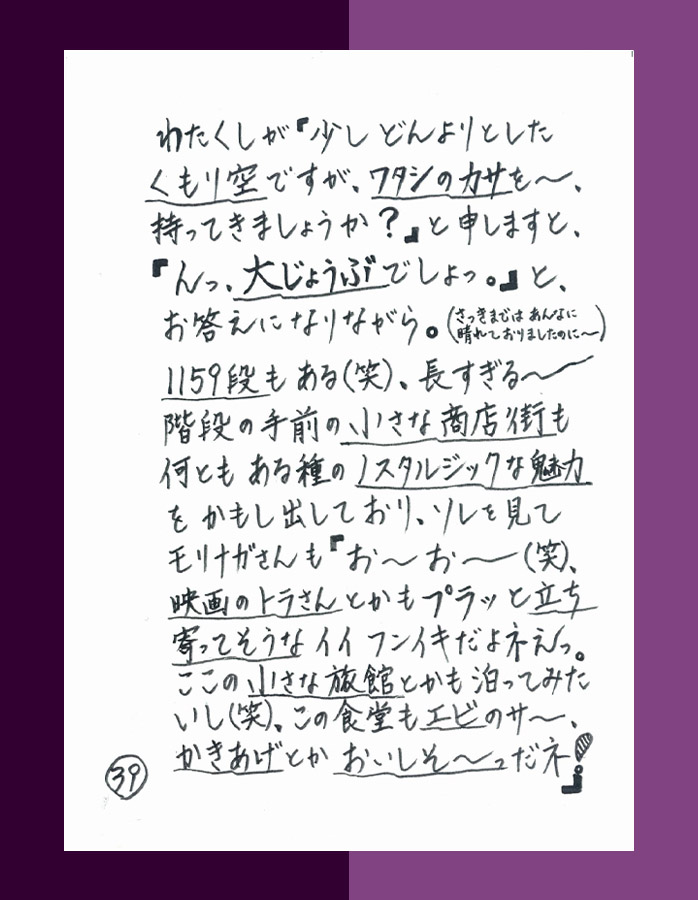 わたくしが『少しどんよりとした
くもり空ですが、ワタシのカサを〜、
持ってきましょうか?』と申しますと、
『んっ、大じょうぶでしょっ。』と、
お答えになりながら。(さっきまではあんなに
晴れておりましたのに〜)
1159段もある(笑)、長すぎる〜
階段の手前の小さな商店街も
何ともある種のノスタルジックな魅力
をかもし出しており、ソレを見て
モリナガさんも『お〜お〜(笑)、
映画のトラさんとかもプラッと立ち
寄ってそうなイイフンイキだよネえっ。
ここの小さな旅館とかも泊ってみた
いし(笑)、この食堂もエビのサ〜、
かきあげとかおいしそ〜っだネ!』
39